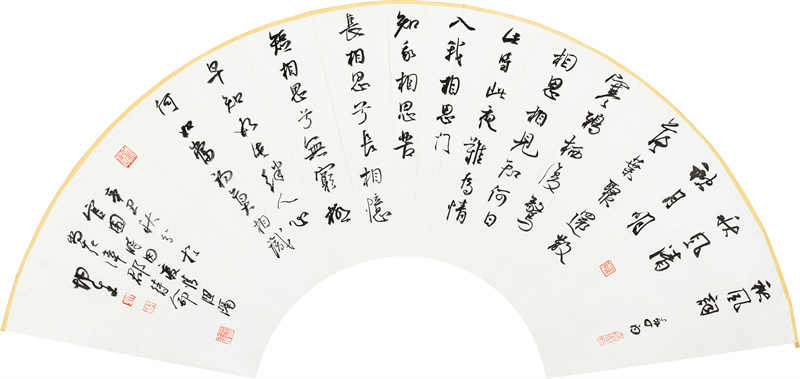 秋風詞
李白
秋風清
秋月明
落葉聚還散
寒鴉棲復驚
相思相見知何日
此時此夜難為情
入我相思門
知我相思苦
長相思兮長相憶
短相思兮無窮極
早知如此絆人心
何如當初莫相識
辛丑秋分於